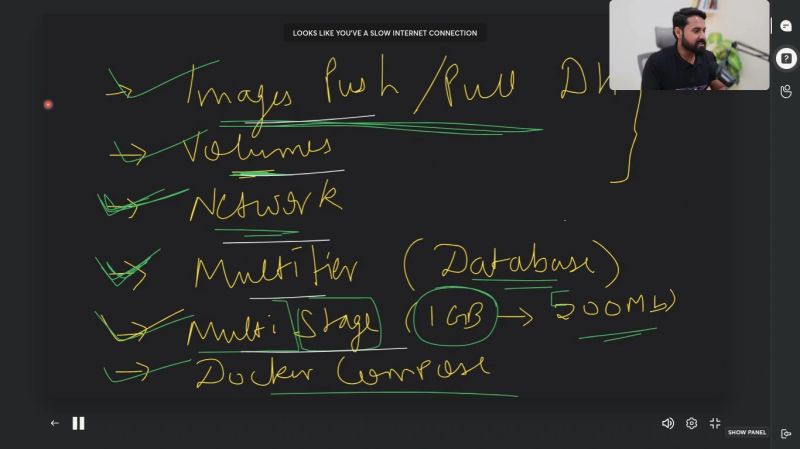 LOOKS LIKE YOU'VE A SLOW INTERNET CONNECTION
→ Images Push / Pull DH
→ Volumes
→ Network
→ Multitier (Database)
→ Multi Stage (1GB → 500Mb)
→ Docker Compose
SHOW PANEL